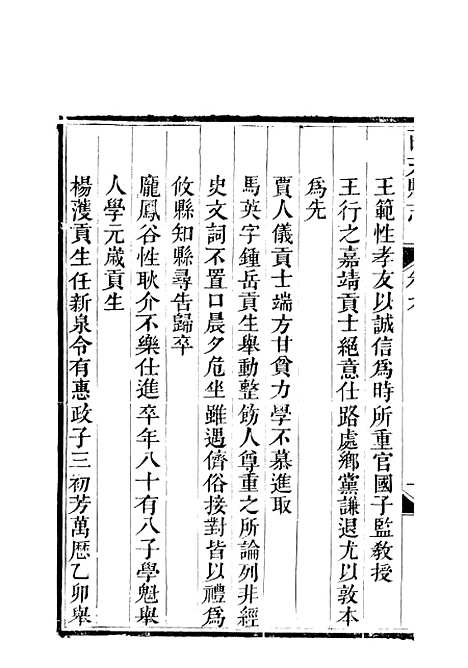 王範性孝友以誠信爲時所重官國子監教授
王行之嘉靖貢士絕意仕路處鄉黨謙退尤以敦本
爲先
賈人儀貢士端方甘貧力學不慕進取
馬英字鍾岳貢生舉動整飭人尊重之所論列非經
史文詞不置口晨夕危坐雖遇儕俗接對皆以禮爲
攸縣知縣尋告歸卒
龐鳳谷性耿介不樂仕進卒年八十有八子學魁舉
人學元歲貢生
楊濩貢生任新泉令有惠政子三初芳萬歷乙卯舉